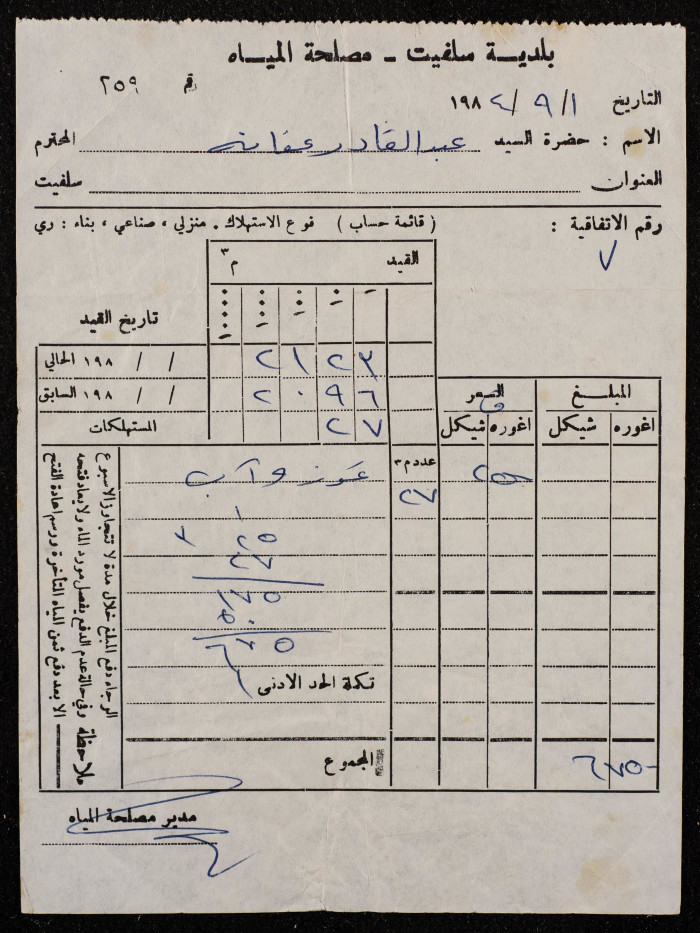 بلديـــة سلفيت - مصلحة الميـــاه
رقم ٢٥٩
التاريخ ١/٩/١٩٨٤
الاسم : حضرة السيد عبد القادر عفانه المحترم
العنوان سلفيت
رقم الاتفاقية : ( قائمة حساب ) نوع الاستهلاك . منزلي ، صناعي ، بناء : ري
٧
القيد م٣
١ ١٠ ١٠٠ ١٠٠٠ ١٠٠٠٠
تاريخ القيد
٢١٢٣ / / ١٩٨ الحالي
٢٠٩٦ / / ١٩٨ السابق
٢٧ المستهلكات
المبلـــغ السعر
اغوره شيكل اغوره شيكل
عدد م٣
تموز وآب
٢٧ ٢٥
٢٥
٢٧ ×
١٧٥
٥٠
٦٧٥
تكملة الحد الادنى
المجموع
٦٧٥-
الرجاء دفع المبلغ خلال مدة لا تتجاوز الاسبوع
وفي حالة عدم الدفع يفصل مورد الماء ولا يعاد فتحه
ملاحظة
الا بعد دفع ثمن المياه المتأخرة ورسم اعادة الفتح
مدير مصلحة المياه